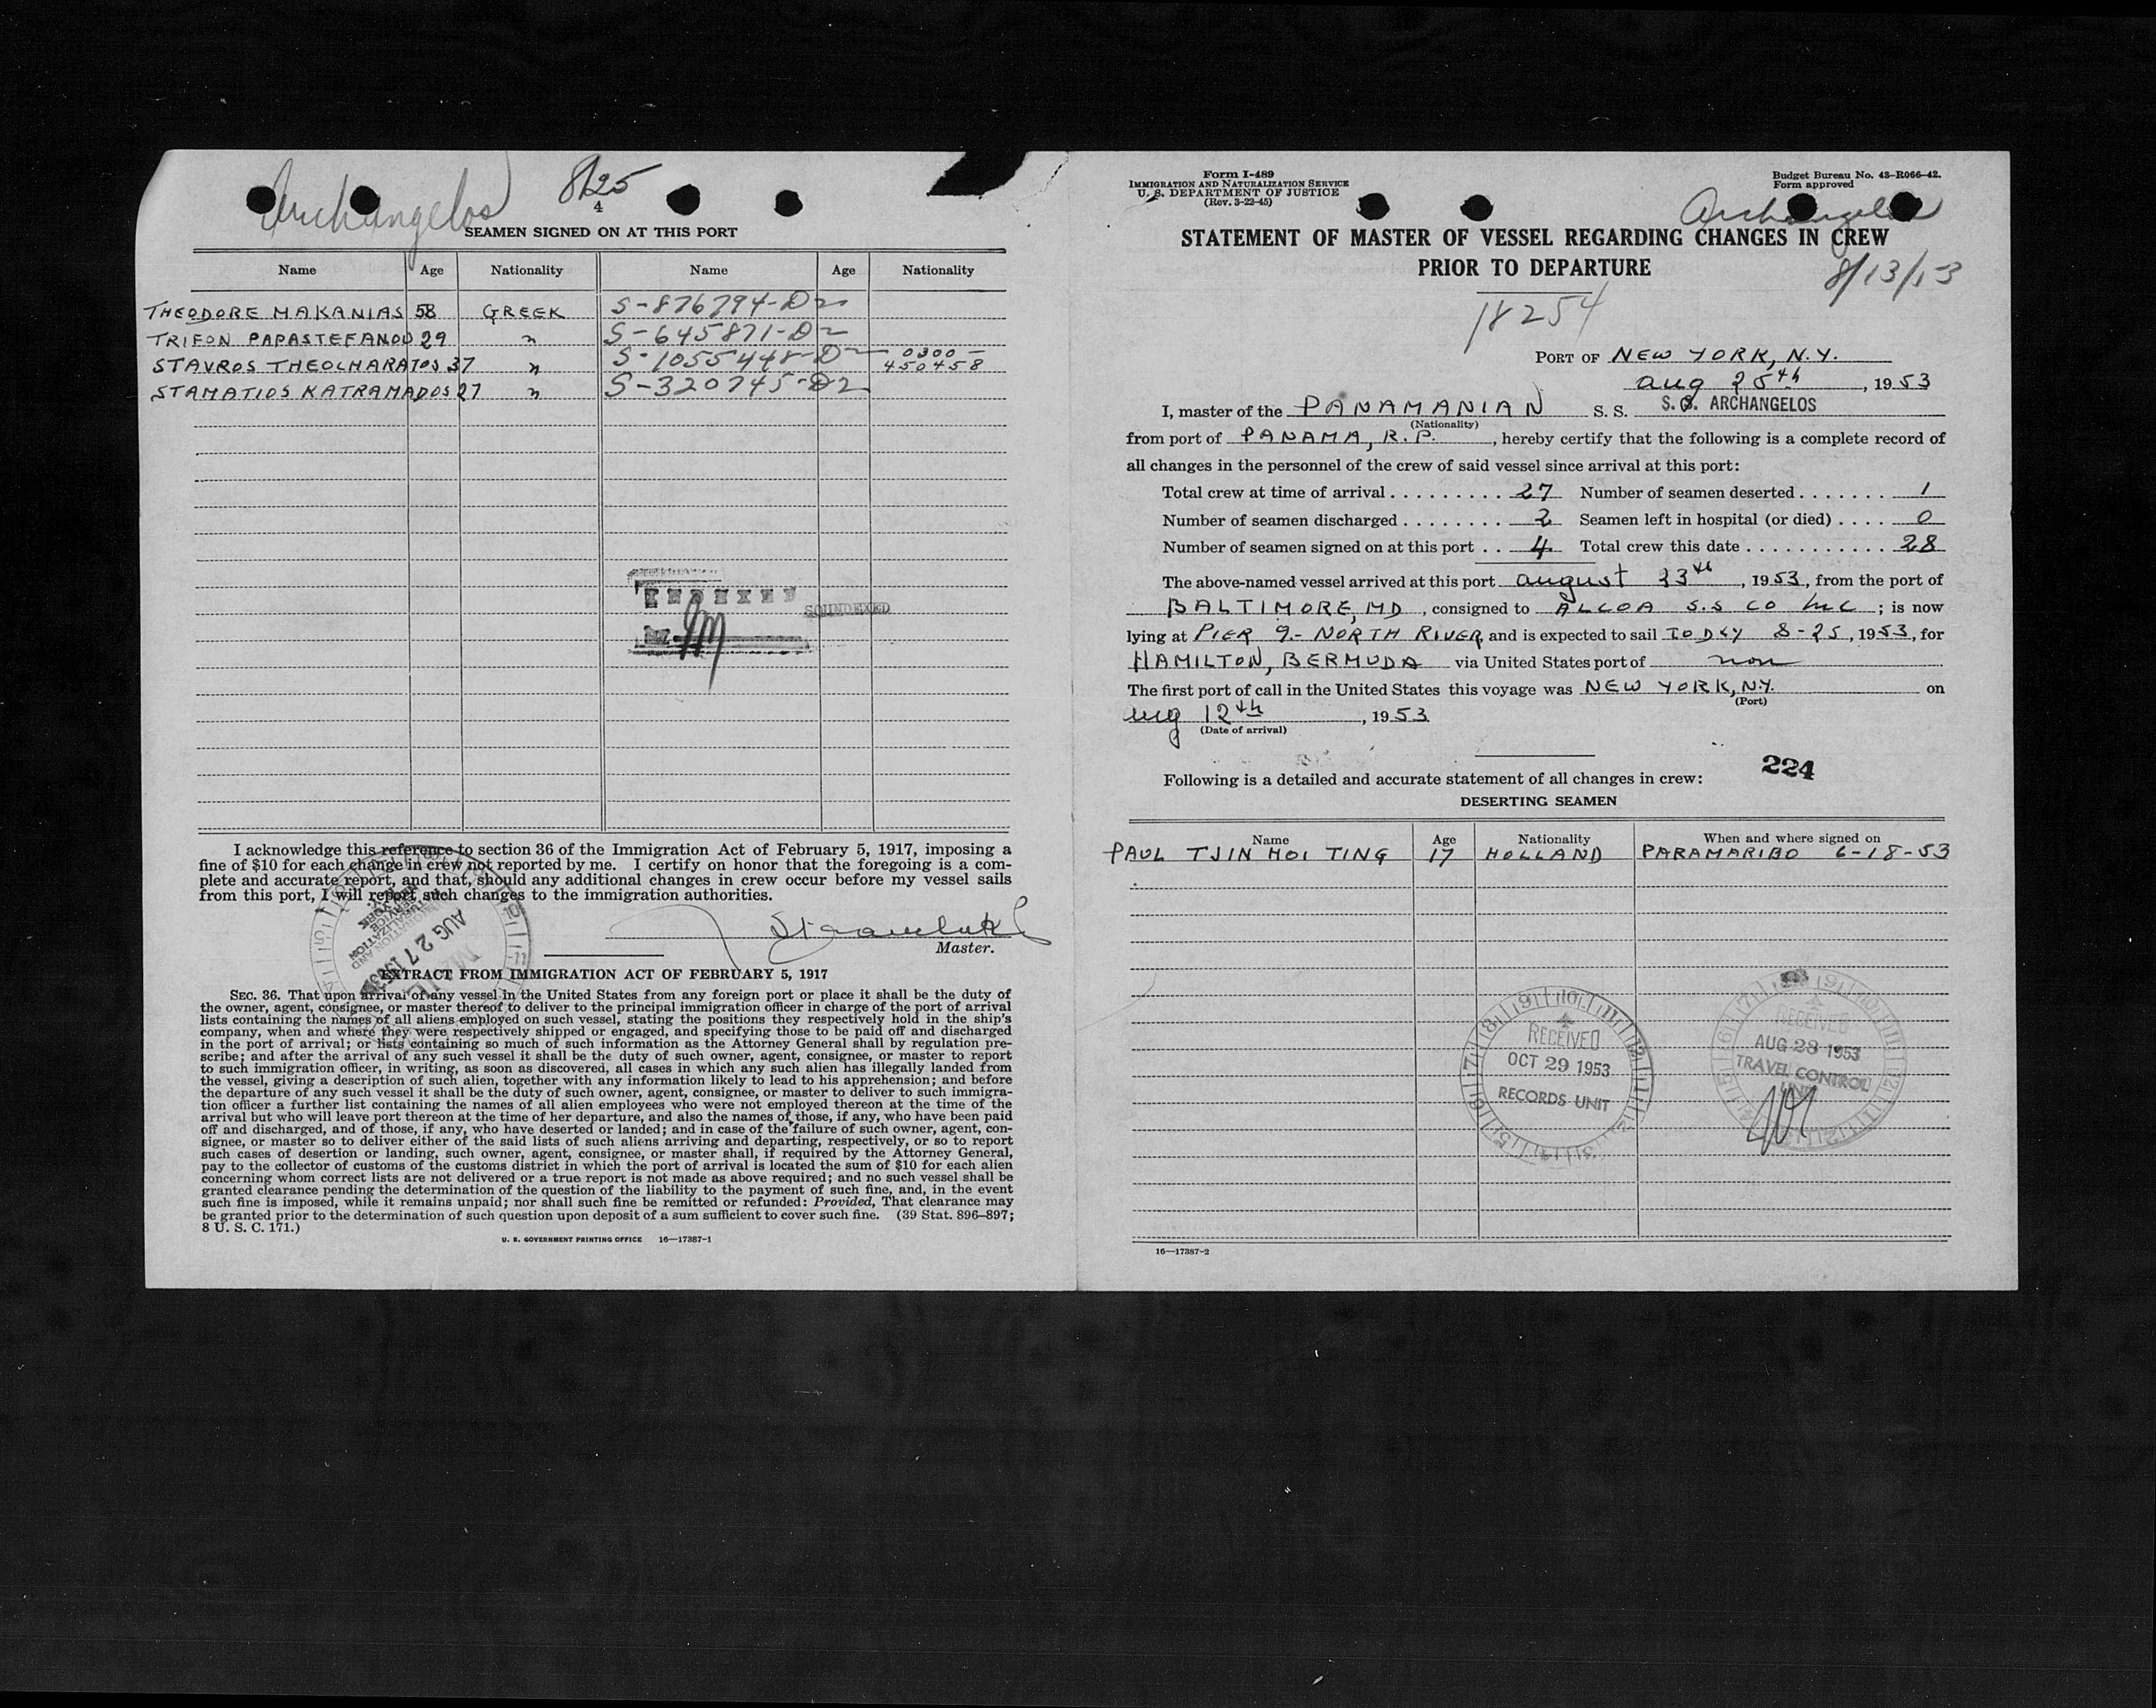 Archangelos 8/25
4
SEAMEN SIGNED ON AT THIS PORT
Name Age Nationality Name Age Nationality
THEODORE MAKANIAS 58 GREEK S-876794-D2
TRIFON PAPASTEFANOU 29 " S-645871-D2
STAVROS THEOLHARATOS 37 " S-1055448-D2 0300-
450458
STAMATIOS KATRAMADOS 27 " S-320745-D2
INDEXED
SOUNDEXED
I acknowledge this reference to section 36 of the Immigration Act of February 5, 1917, imposing a
fine of $10 for each change in crew not reported by me. I certify on honor that the foregoing is a com-
plete and accurate report, and that, should any additional changes in crew occur before my vessel sails
from this port, I will report such changes to the immigration authorities.
Master.
AUG 27 1953
EXTRACT FROM IMMIGRATION ACT OF FEBRUARY 5, 1917
SEC. 36. That upon arrival of any vessel in the United States from any foreign port or place it shall be the duty of
the owner, agent, consignee, or master thereof to deliver to the principal immigration officer in charge of the port of arrival
lists containing the names of all aliens employed on such vessel, stating the positions they respectively hold in the ship's
company, when and where they were respectively shipped or engaged, and specifying those to be paid off and discharged
in the port of arrival; or lists containing so much of such information as the Attorney General shall by regulation pre-
scribe; and after the arrival of any such vessel it shall be the duty of such owner, agent, consignee, or master to report
to such immigration officer, in writing, as soon as discovered, all cases in which any such alien has illegally landed from
the vessel, giving a description of such alien, together with any information likely to lead to his apprehension; and before
the departure of any such vessel it shall be the duty of such owner, agent, consignee, or master to deliver to such immigra-
tion officer a further list containing the names of all alien employees who were not employed thereon at the time of the
arrival but who will leave port thereon at the time of her departure, and also the names of those, if any, who have been paid
off and discharged, and of those, if any, who have deserted or landed; and in case of the failure of such owner, agent, con-
signee, or master so to deliver either of the said lists of such aliens arriving and departing, respectively, or so to report
such cases of desertion or landing, such owner, agent, consignee, or master shall, if required by the Attorney General,
pay to the collector of customs of the customs district in which the port of arrival is located the sum of $10 for each alien
concerning whom correct lists are not delivered or a true report is not made as above required; and no such vessel shall be
granted clearance pending the determination of the question of the liability to the payment of such fine, and, in the event
such fine is imposed, while it remains unpaid; nor shall such fine be remitted or refunded: Provided, That clearance may
be granted prior to the determination of such question upon deposit of a sum sufficient to cover such fine. (39 Stat. 896–897;
8 U. S. C. 171.)
U. S. GOVERNMENT PRINTING OFFICE 16—17387-1
Form I-489
IMMIGRATION AND NATURALIZATION SERVICE
U. S. DEPARTMENT OF JUSTICE
(Rev. 3-22-45)
Budget Bureau No. 43-R066-42.
Form approved
Archangelos
STATEMENT OF MASTER OF VESSEL REGARDING CHANGES IN CREW
PRIOR TO DEPARTURE
8/13/53
18254
PORT OF NEW YORK, N.Y.
Aug 25th, 1953
I, master of the PANAMANIAN S. S. S.S. ARCHANGELOS
(Nationality)
from port of PANAMA, R.P., hereby certify that the following is a complete record of
all changes in the personnel of the crew of said vessel since arrival at this port:
Total crew at time of arrival . . . . . . . . . 27 Number of seamen deserted . . . . . . . 1
Number of seamen discharged . . . . . . . . 2 Seamen left in hospital (or died) . . . . 0
Number of seamen signed on at this port . . 4 Total crew this date . . . . . . . . . . . 28
The above-named vessel arrived at this port August 23th, 1953, from the port of
BALTIMORE, MD, consigned to ALCOA S.S CO INC; is now
lying at PIER 9.- NORTH RIVER, and is expected to sail TODAY 8-25, 1953, for
HAMILTON, BERMUDA via United States port of non
The first port of call in the United States this voyage was NEW YORK, N.Y. on
(Port)
Aug 12th, 1953
(Date of arrival)
224
Following is a detailed and accurate statement of all changes in crew:
DESERTING SEAMEN
Name Age Nationality When and where signed on
PAUL TJIN HOI TING 17 HOLLAND PARAMARIBO 6-18-53
RECEIVED
OCT 29 1953
RECORDS UNIT
RECEIVED
AUG 28 1953
TRAVEL CONTROL
UNIT
16—17387-2